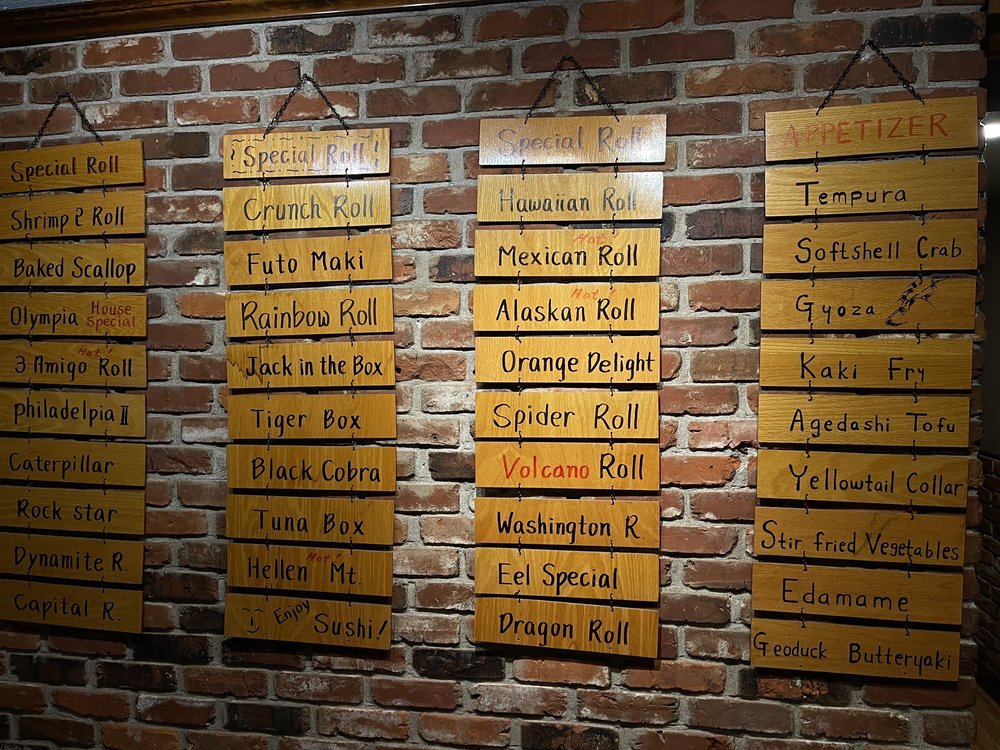 Special Roll
Shrimp 2 Roll
Baked Scallop
Olympia House Special
3 Amigo Hot! Roll
philadelpia II
Caterpillar
Rock star
Dynamite R.
Capital R.
! Special Roll !
Crunch Roll
Futo Maki
Rainbow Roll
Jack in the Box
Tiger Box
Black Cobra
Tuna Box
Hellen Hot! Mt.
Enjoy Sushi!
Special Roll
Hawaiian Roll
Mexican Hot! Roll
Alaskan Hot! Roll
Orange Delight
Spider Roll
Volcano Roll
Washington R.
Eel Special
Dragon Roll
APPETIZER
Tempura
Softshell Crab
Gyoza
Kaki Fry
Agedashi Tofu
Yellowtail Collar
Stir fried Vegetables
Edamame
Geoduck Butteryaki